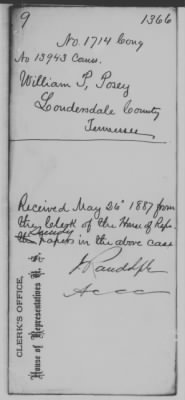 9 1366
No. 1714 Cong
No 13943 Cases.
William P. Posey
Loudersdale County
Tennessee
Received May 26" 1887 from
the Clerk of the House of Reps.
Sundry
the papers in the above case
J Randolph
A c c c
CLERK'S OFFICE,
House of Representatives U. S.